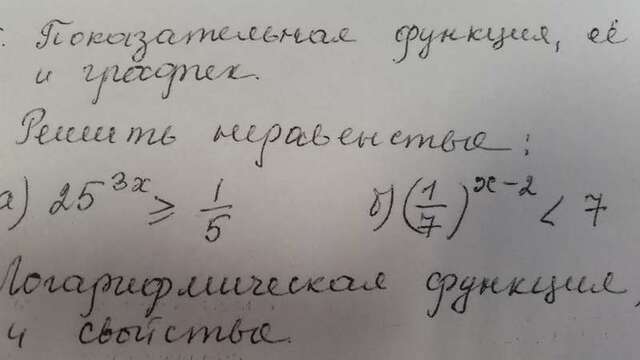 . Показательная функция, её
и график.
Решить неравенства:
а) 25^{3x} ≥ 1/5 б) (1/7)^{x-2} < 7
Логарифмическая функция,
и свойства.